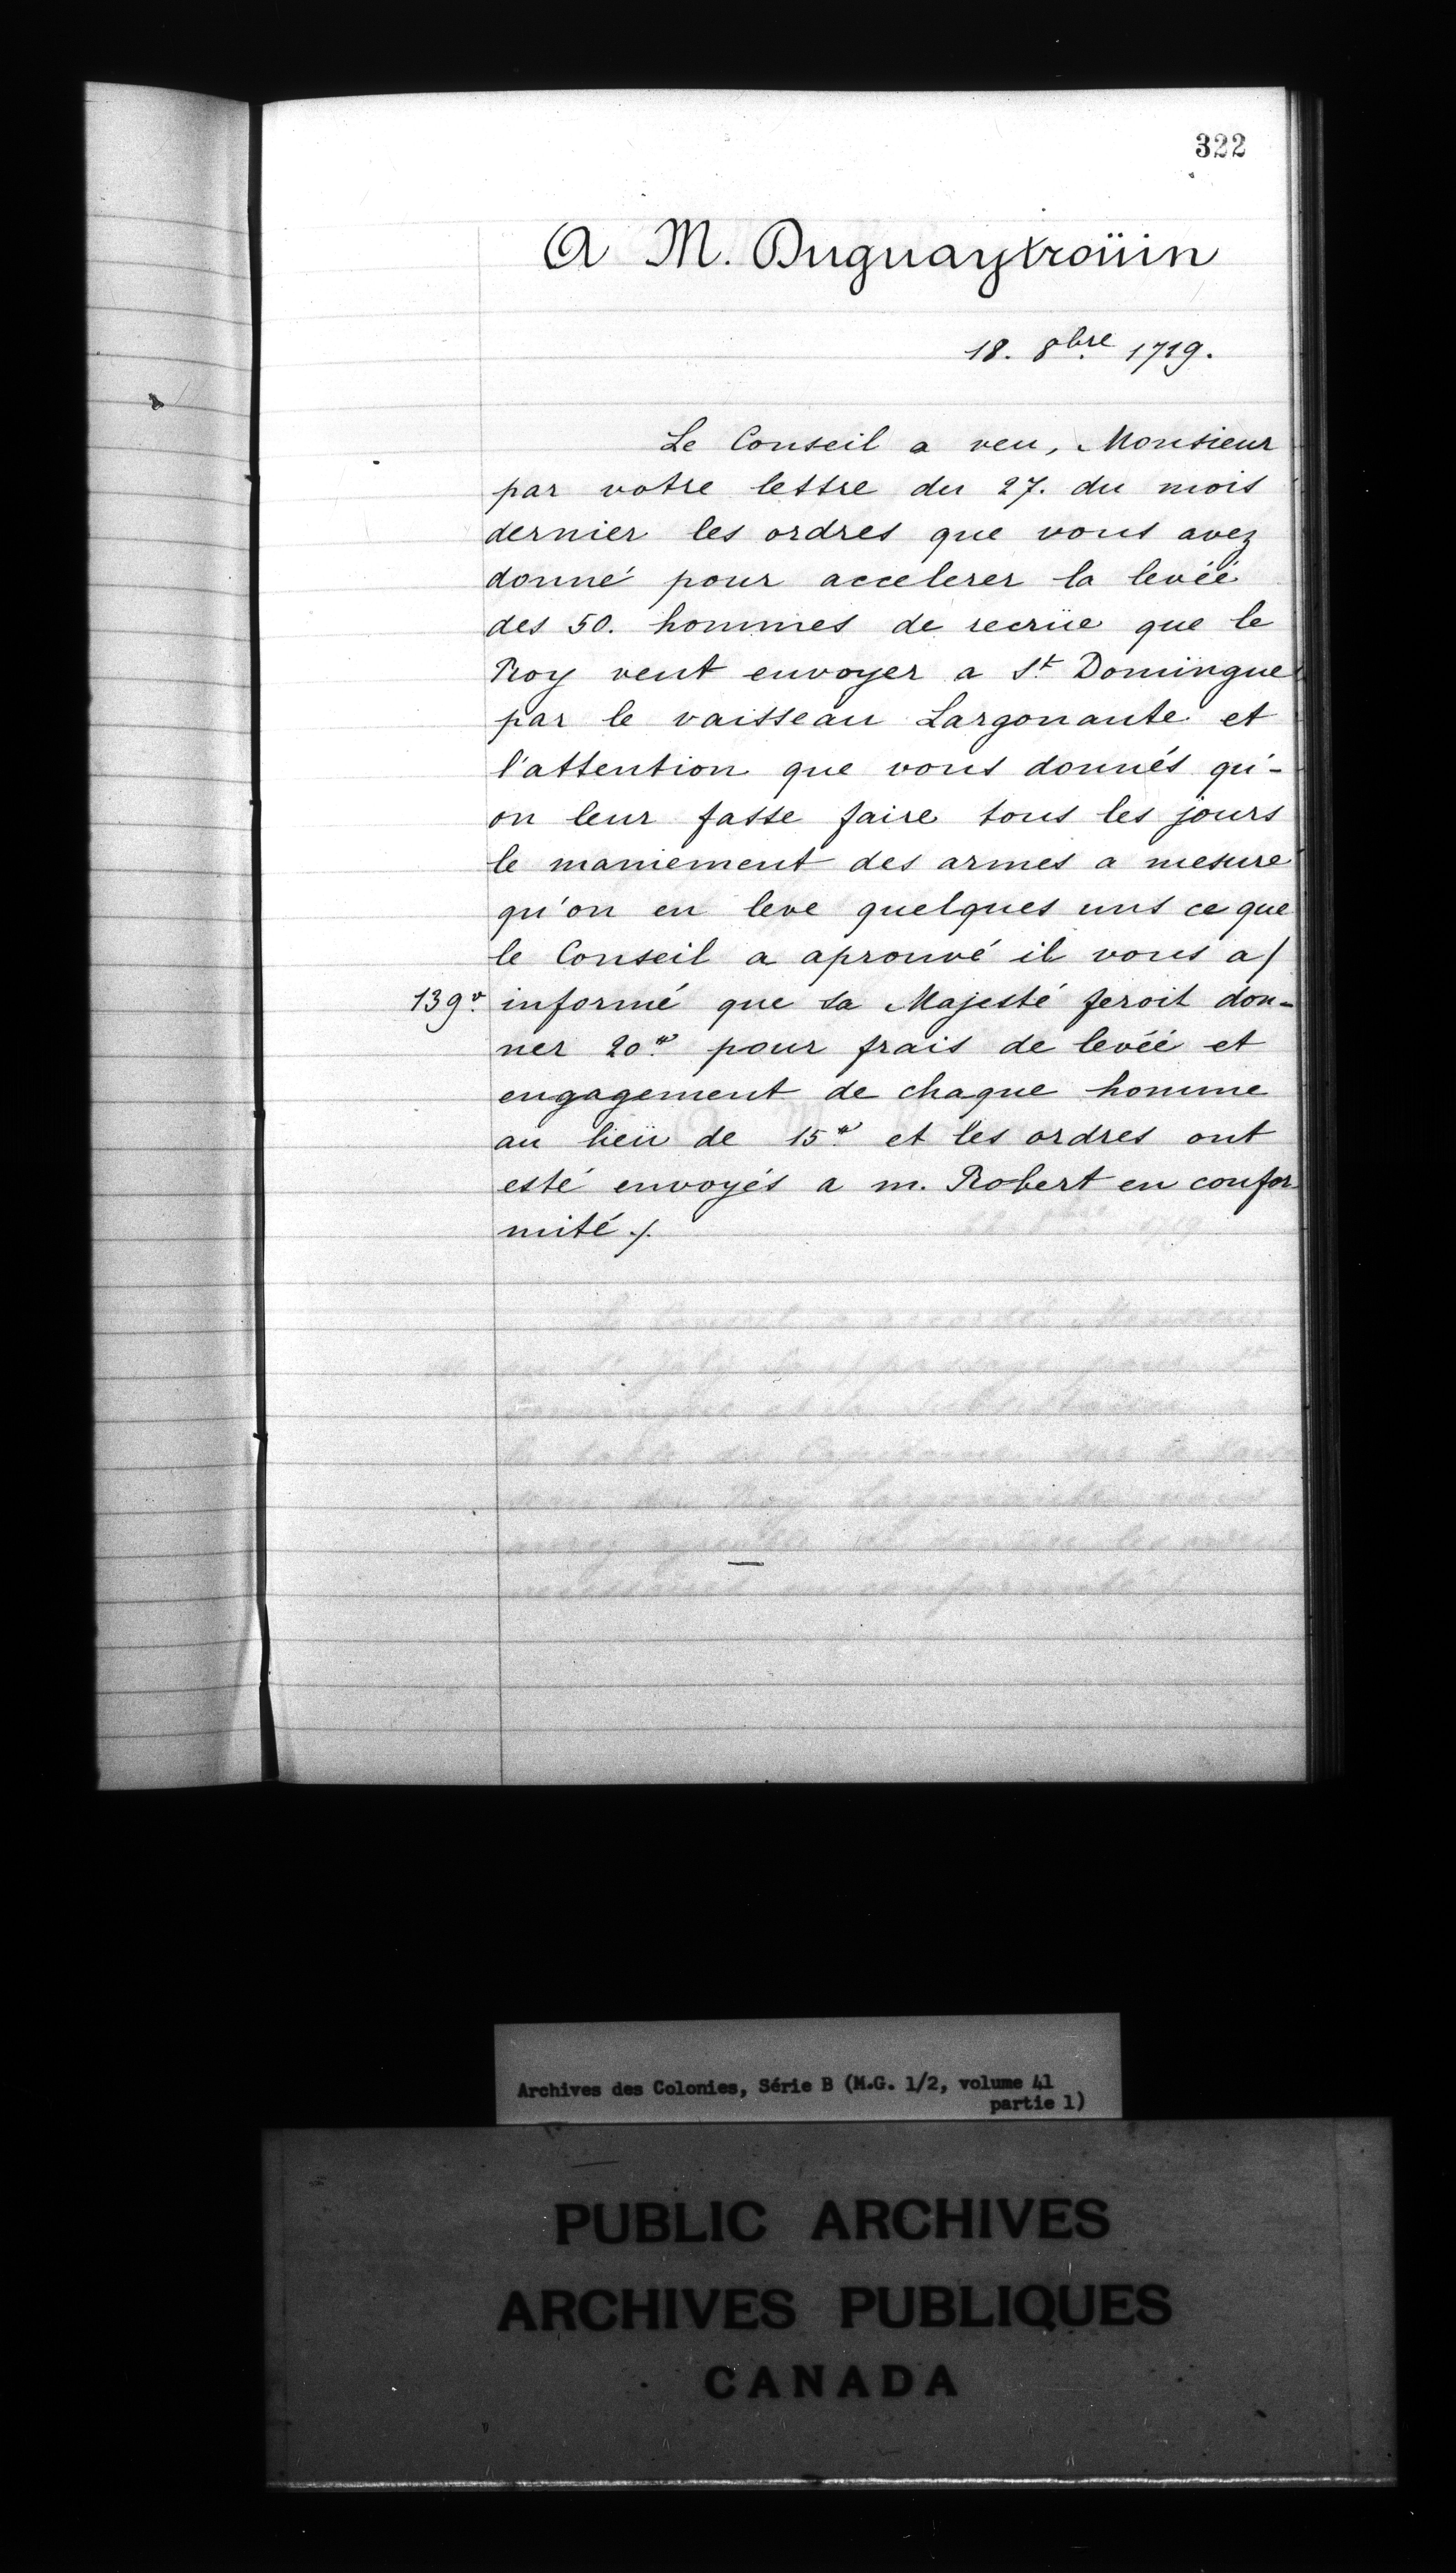 322
A M. Duguaytroüin
18. 8bre 1719.
Le Conseil a veu, Monsieur
par votre lettre du 27. du mois
dernier les ordres que vous avez
donné pour accelerer la levéé
des 50. hommes de recrüe que le
Roy veut envoyer a St Domingue
par le vaisseau Largonaute et
l'attention que vous donnés qu'-
on leur fasse faire tous les jours
le maniement des armes a mesure
qu'on en leve quelques uns ce que
le Conseil a aprouvé il vous a/
139v. informé que sa Majesté feroit don-
ner 20# pour frais de levéé et
engagement de chaque homme
au lieü de 15# et les ordres ont
esté envoyés a m. Robert en confor
mité ./.
Archives des Colonies, Série B (M.G. 1/2, volume 41
partie 1)
PUBLIC ARCHIVES
ARCHIVES PUBLIQUES
CANADA